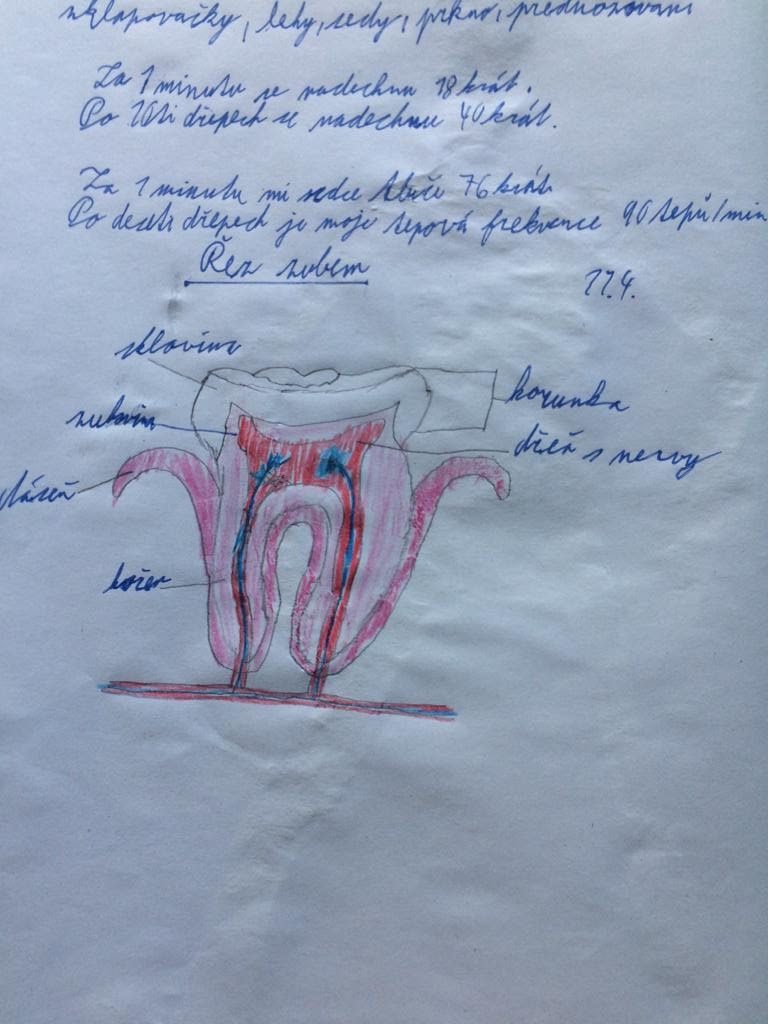 sklapovačky, lehy, sedy, prkno, přednožování
Za 1 minutu se nadechnu 18 krát.
Po 10ti dřepech se nadechnu 40 krát.
Za 1 minutu mi srdce tluče 76 krát
Po deseti dřepech je moje tepová frekvence 90 tepů/min
Řez zubem
17.4.
sklovina
korunka
zubovina
dřeň s nervy
dáseň
kořen